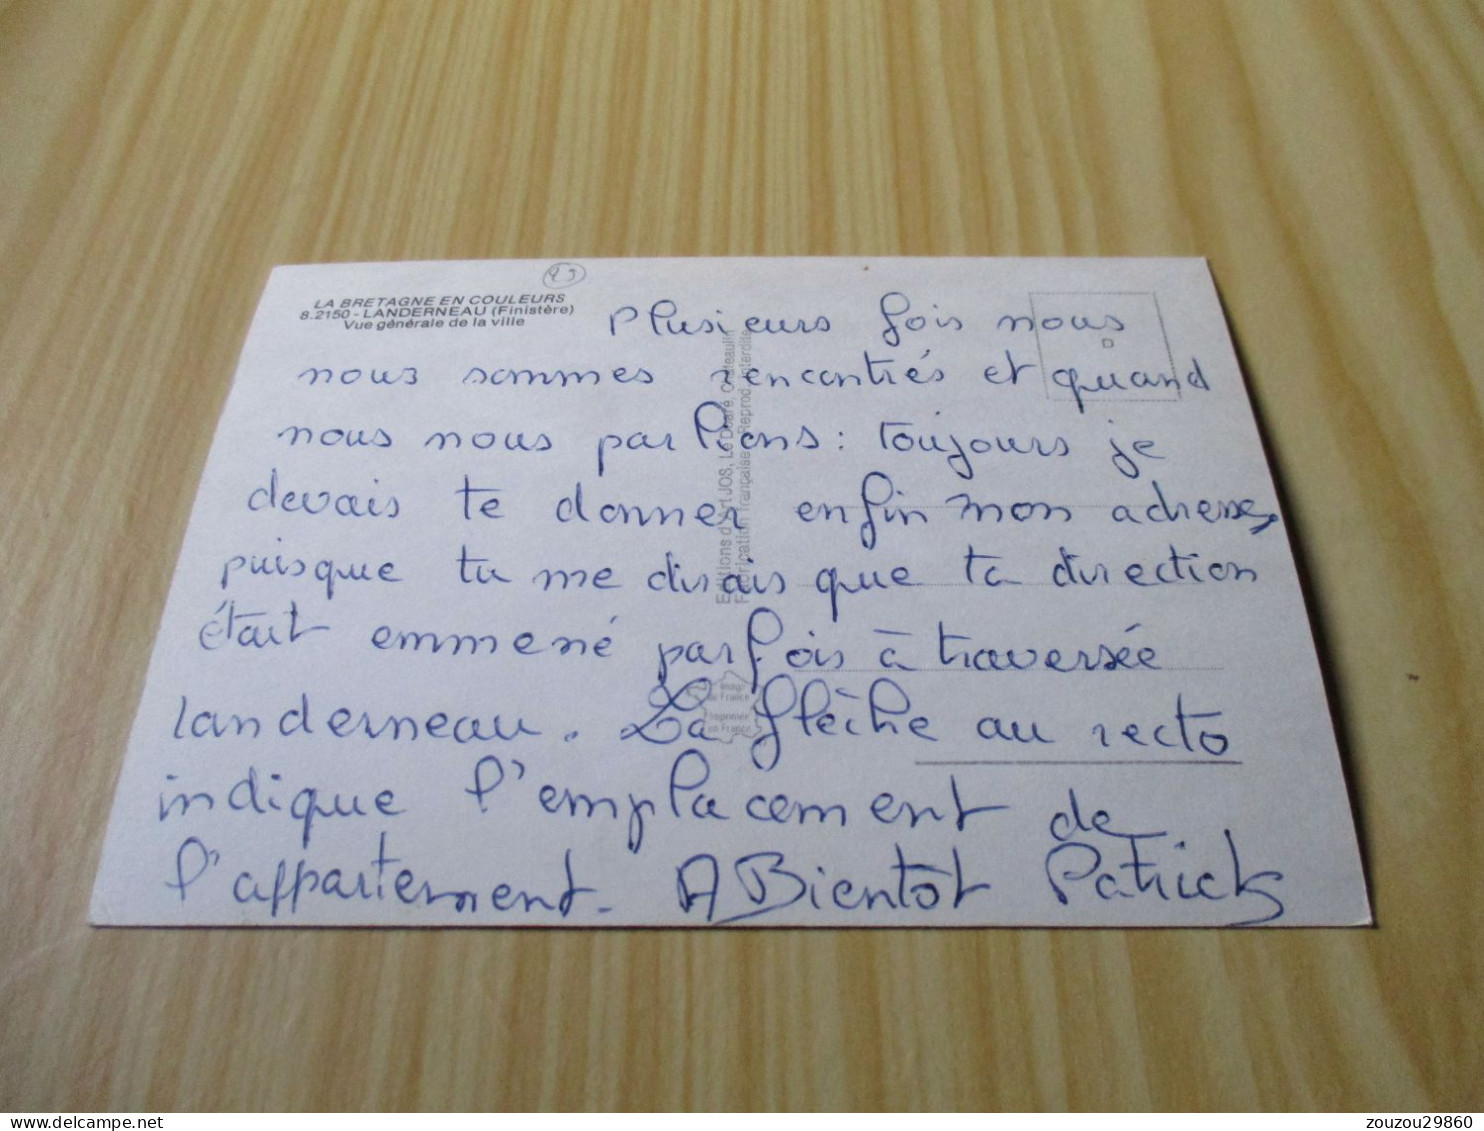 23
LA BRETAGNE EN COULEURS
8.2150 - LANDERNEAU (Finistère)
Vue générale de la ville
Plusieurs fois nous
nous sommes rencontrés et quand
nous nous parlions : toujours je
devais te donner enfin mon adresse,
puisque tu me disais que ta direction
était emmené parfois à traversée
landerneau. La flèche au recto
indique l'emplacement de
l'appartement. A Bientôt Patrick
Editions d'Art JOS, Le Doaré, Châteaulin
Fabrication française - Reprod. interdite
Image
de France
Imprimer
en France
zouzou29860